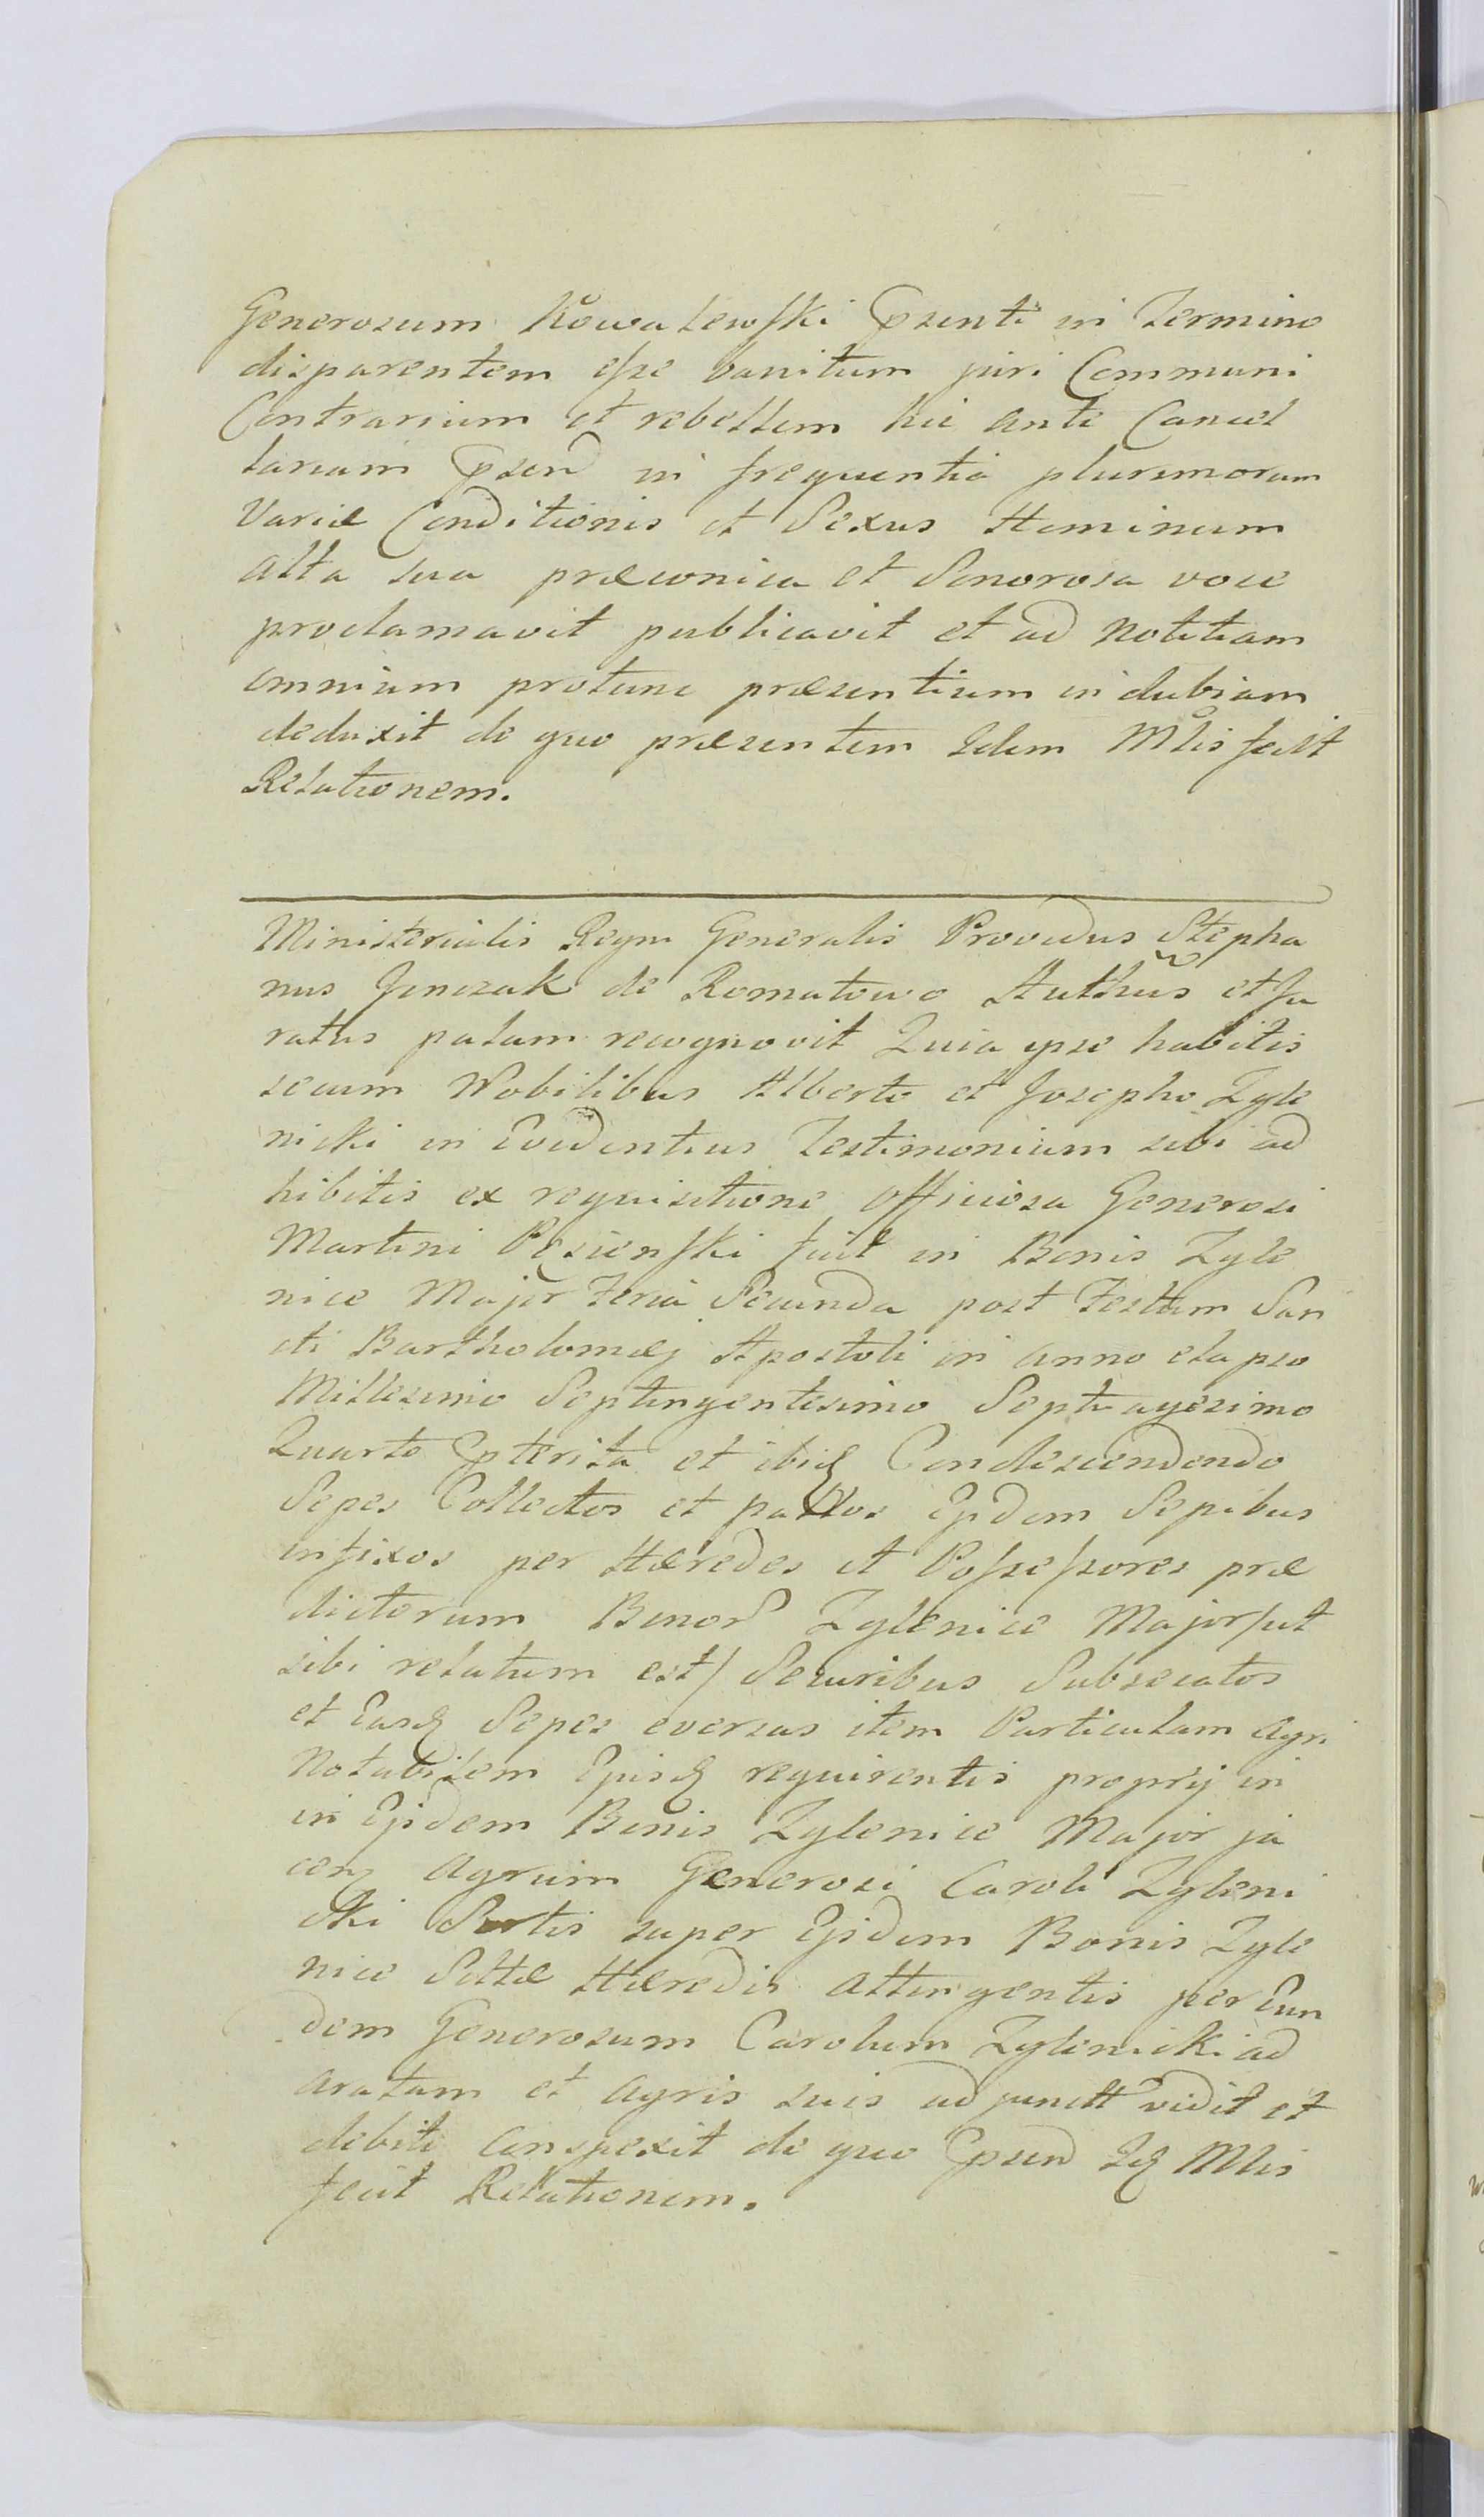 Generosum Kowalewski Psenti in Termino
disparentem esse banitum juri Communi
Contrarium et rebellem hic ante Cancel
lariam Psend in frequentia plurimorum
Variæ Conditionis et Sexus Hominum
alta sua præconica et Sonorosa voce
proclamavit publicavit et ad Notitiam
omnium protunc præsentium indubiam
deduxit de quo præsentem Idem Mlis fecit
Relationem.
Ministerialis Regni Generalis Providus Stepha
nus Jenczak de Romatowo Authus et Ju
ratus palam recognovit Quia ipse habitis
secum Nobilibus Alberto et Josepho Zyle
nicki in Evidentius Testimonium sibi ad
hibitis ex requisitione officiosa Generosi
Martini Pęsienski fuit in Bonis Zyle
nice Major Feria Secunda post Festum San
cti Bartholomæj Apostoli in anno elapso
Millesimo Septingentesimo Septuagesimo
Quarto Pterita et ibiq Condescendendo
Sepes Collectos et pallos Ejsdem Sepibus
infixos per Hæredes et Possessores præ
dictorum Bonor Zylenice Major /ut
sibi relatum est/ Securibus Subsecatos
et Easq Sepes eversas item Particulam Agri
Notabilem Ejusq requirentis proprij in
in Ejsdem Bonis Zylenice Major ja
cen Agrum Generosi Caroli Zyleni
cki Sortis super Ejsdem Bonis Zyle
nice Settæ Hæredis attingentis per Eun
dem Generosum Carolum Zylenicki ad
aratam et agris suis adjunctt vidit et
debite Conspexit de quo Psend Iq Mlis
fecit Relationem.